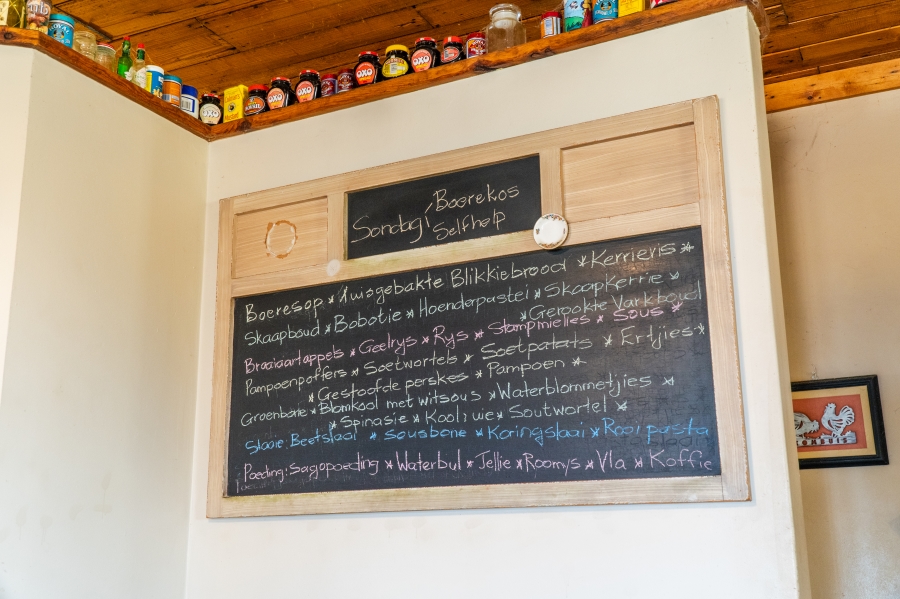 OXO
OXO
OXO
OXO
OXO
Boerekos
Sondag, Selfhelp
Boeresop * Tuisgebakte Blikkiebrood * Kerrievis *
Skaapboud * Bobotie * Hoenderpastei * Skaapkerrie *
* Gerookte Varkboud
Braaiaartappels * Geelrys * Rys * Stampmielies * Sous *
Pampoenpoffers * Soetwortels * Soetpatats * Ertjies *
* Gestoofde perskes * Pampoen *
Groenbone * Blomkool met witsous * Waterblommetjies *
* Spinasie * Kool: uie * Soutwortel *
Slaaie: Beetslaai * Sousbone * Koringslaai * Rooi pasta
slaai
Poeding: Sagopoeding * Waterbul * Jellie * Roomys * Vla * Koffie
KOMBUIS